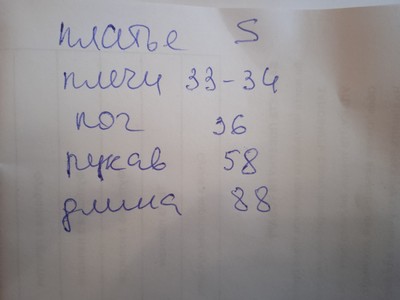 платье S
плечи 33-34
пог 36
рукав 58
длина 88